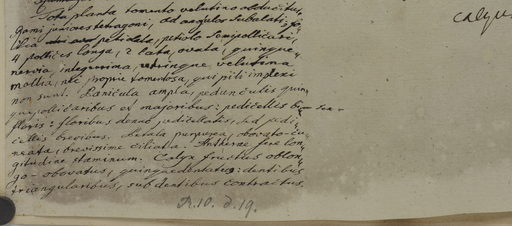 Tota planta tomento velutino obducitur,
gami juniores tetragoni, ad angulos subalati: fo-
lia petiolata, petiolo semipollicari,
4 pollices longa, 2 lata, ovata, quinque-
nervia, integerrima, utrinque velutina
mollia, nec proprie tomentosa, qui pili implexi
non sunt. Panicula ampla, pedunculis quin-
quepollicaribus et majoribus: pedicellis
floris: floribus denuo pedicellatis, sed pedi-
cellis brevibus. Petala purpurea, obovato-cu-
neata, brevissime ciliata. Antherae fere lon-
gitudine staminum. Calyx fructus oblon-
go-obovatus, quinquedentatus: dentibus
triangularibus, sub dentibus contractus.
R.10. d.19.
calyx